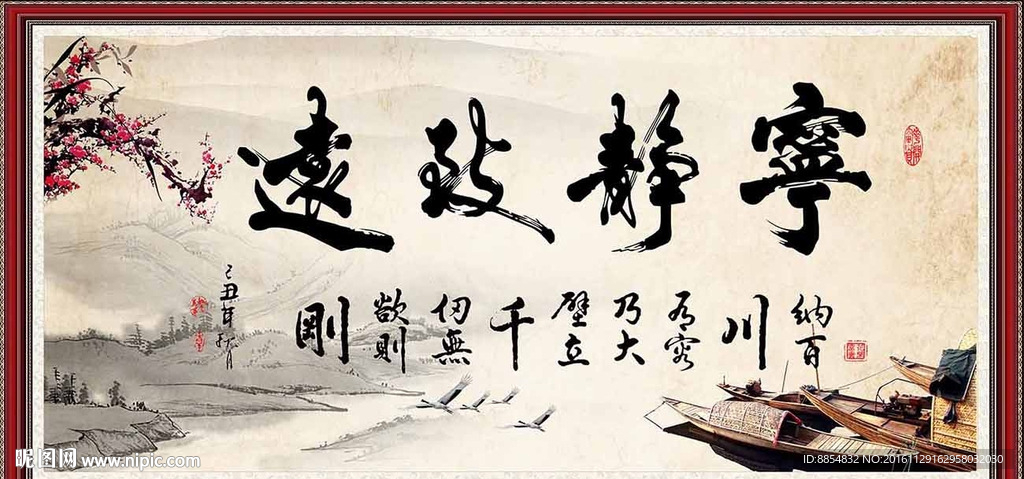 寧靜致遠
納百
川
有容
乃大
壁立
千
仞無
欲則
剛
己丑年秋月
昵图网 www.nipic.com
ID:8854832 NO:20161129162958032030